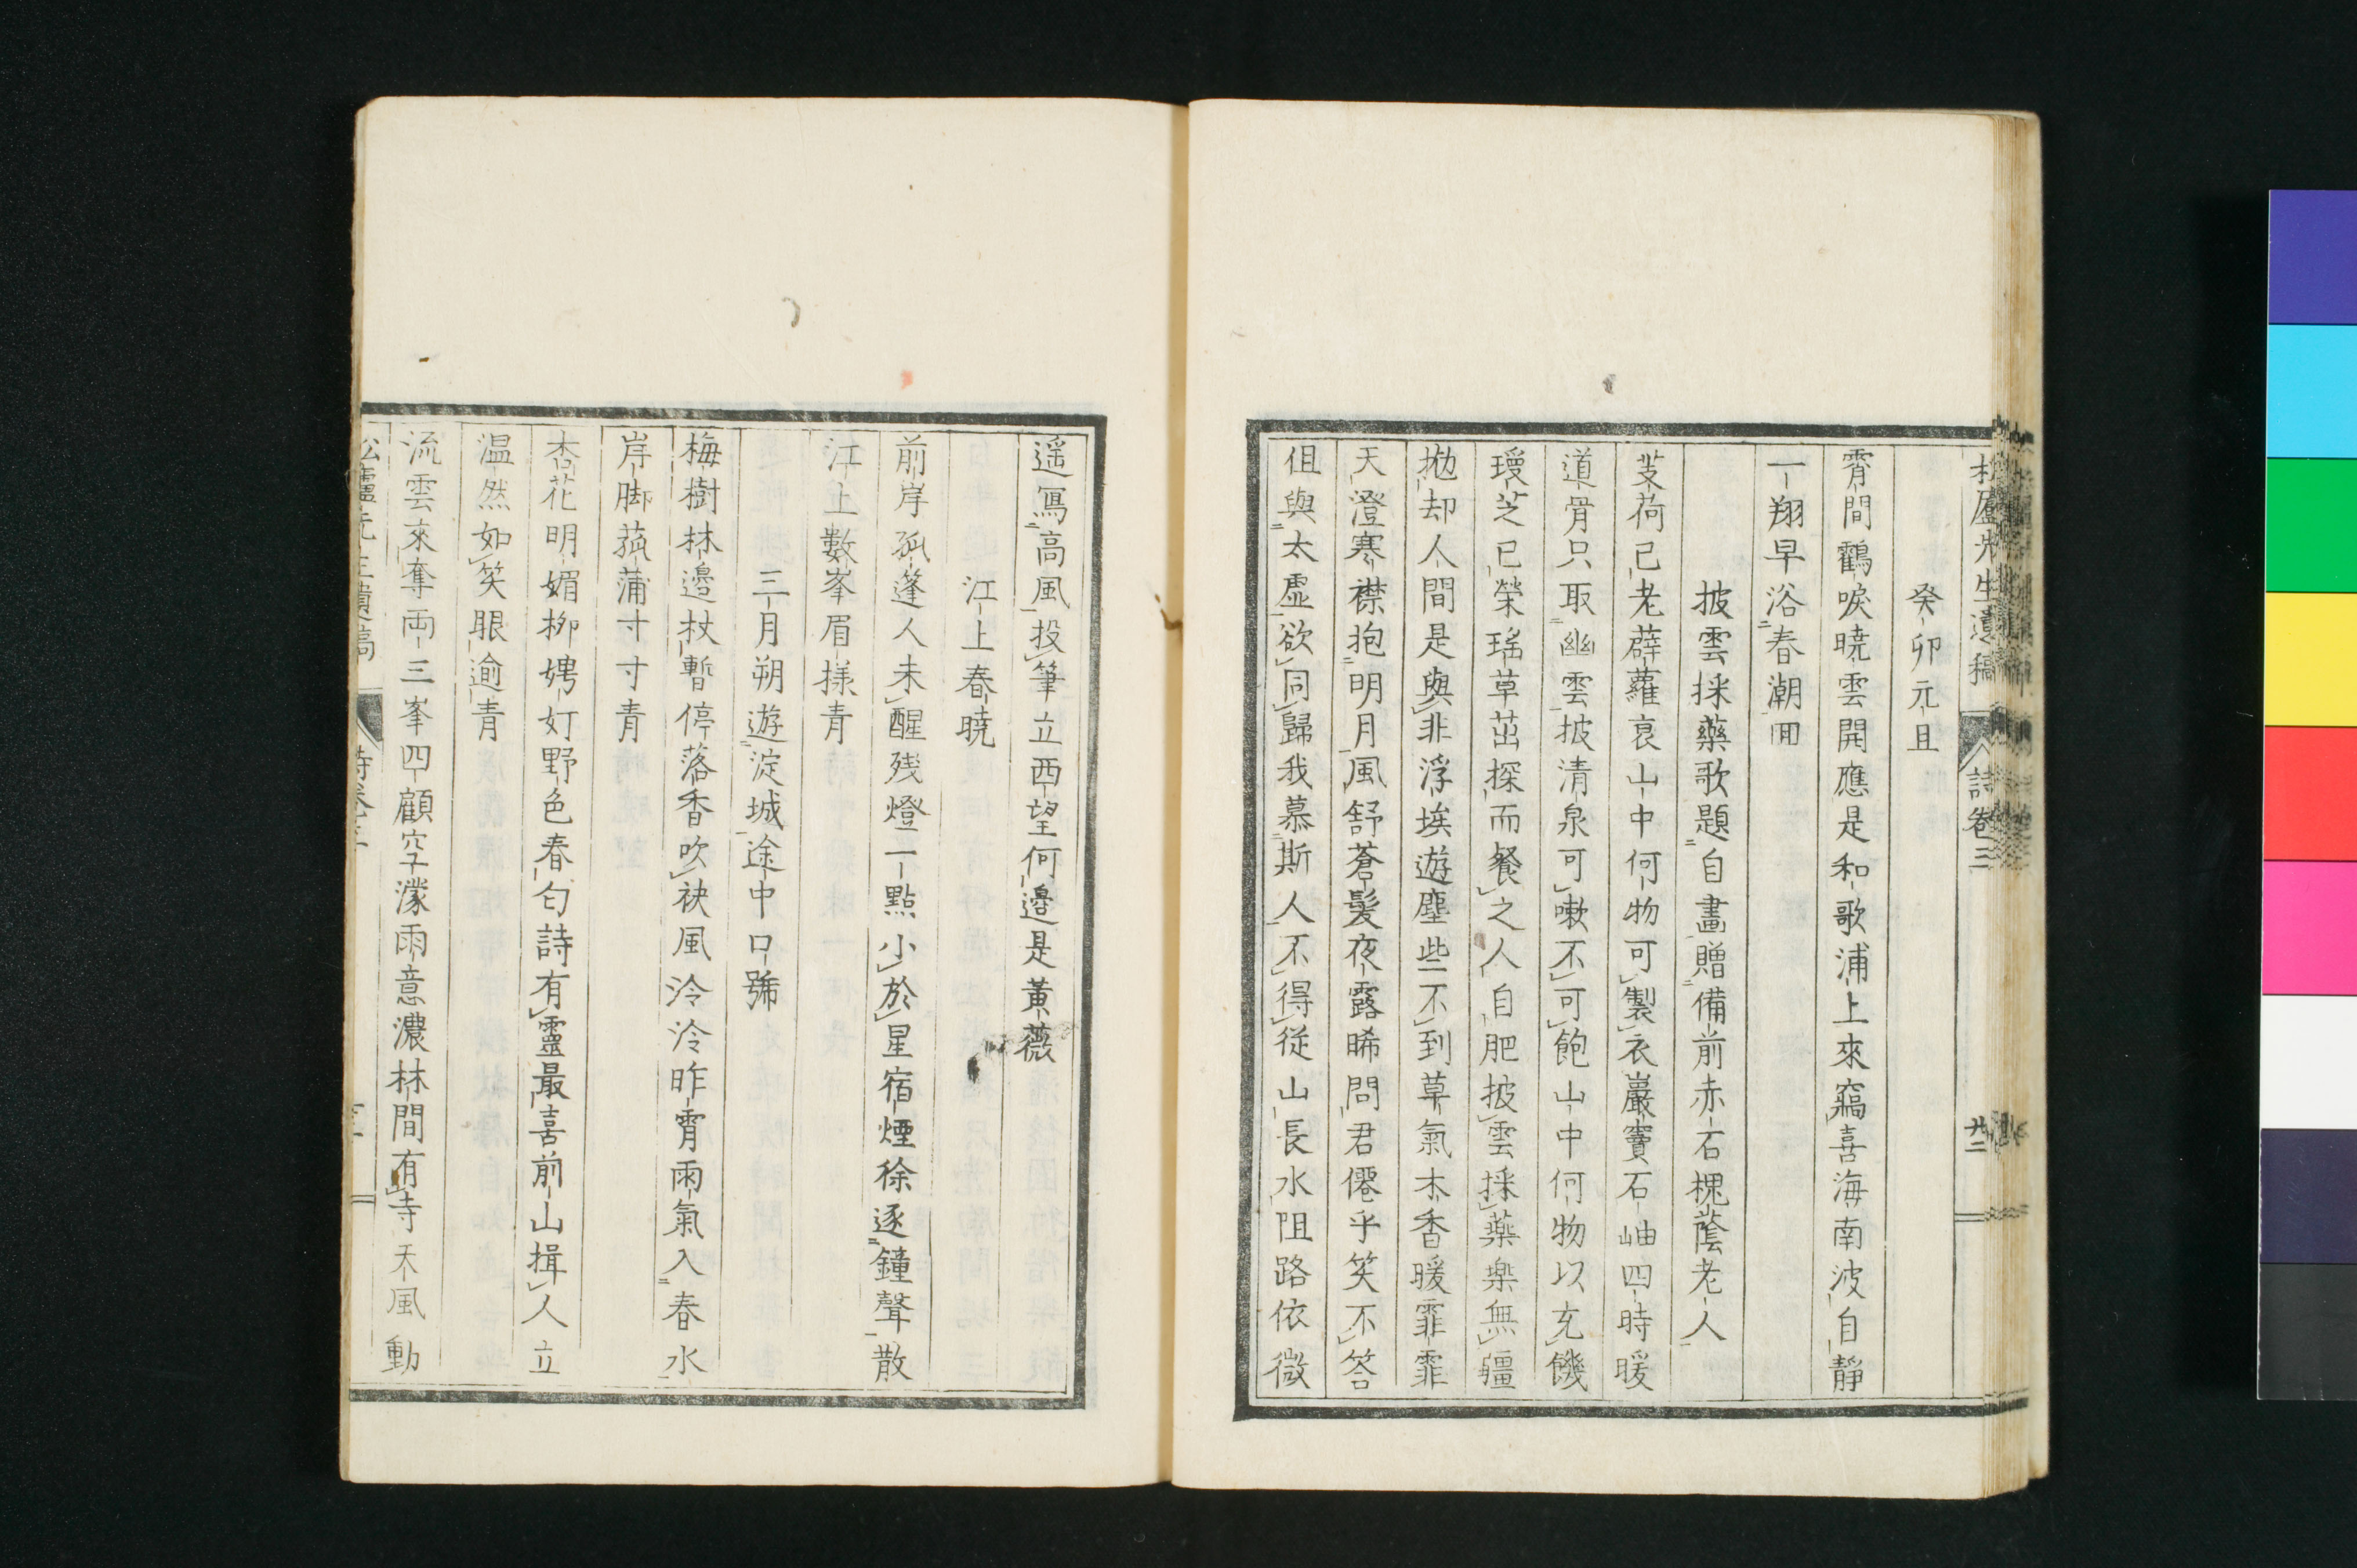 松廬先生遺稿　詩卷三　廿二
癸卯元旦
霄間鶴唳曉雲開應是和歌浦上來竊喜海南波自靜
一翔早浴春潮回
披雲採藥歌題自畫贈備前赤石槐蔭老人
芰荷已老薜蘿衰山中何物可製衣巖竇石岫四時暖
道骨只取幽雲披清泉可嗽不可飽山中何物以充饑
璦芝已榮瑤草茁探而餐之人自肥披雲採藥樂無疆
拋却人間是與非浮埃遊塵些不到草氣木香暖霏霏
天澄寒襟抱明月風舒蒼髮夜露晞問君僊乎笑不答
但與太虛欲同歸我慕斯人不得從山長水阻路依微
遥寫高風投筆立西望何邊是黃薇
江上春曉
前岸孤篷人未醒残燈一點小於星宿煙徐逐鐘聲散
江上數峯眉樣青
三月朔遊淀城途中口號
梅樹林邊杖暫停落香吹袂風泠泠昨霄雨氣入春水
岸脚菰蒲寸寸青
杏花明媚柳娉婷野色春勻詩有靈最喜前山揖人立
温然如笑眼逾青
流雲來奪両三峯四顧空濛雨意濃林間有寺天風動
松廬先生遺稿　詩卷三